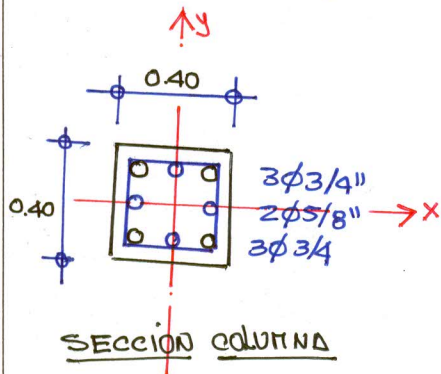 y
0.40
0.40
3Ø3/4"
2Ø5/8"
x
3Ø3/4
SECCIÓN COLUMNA